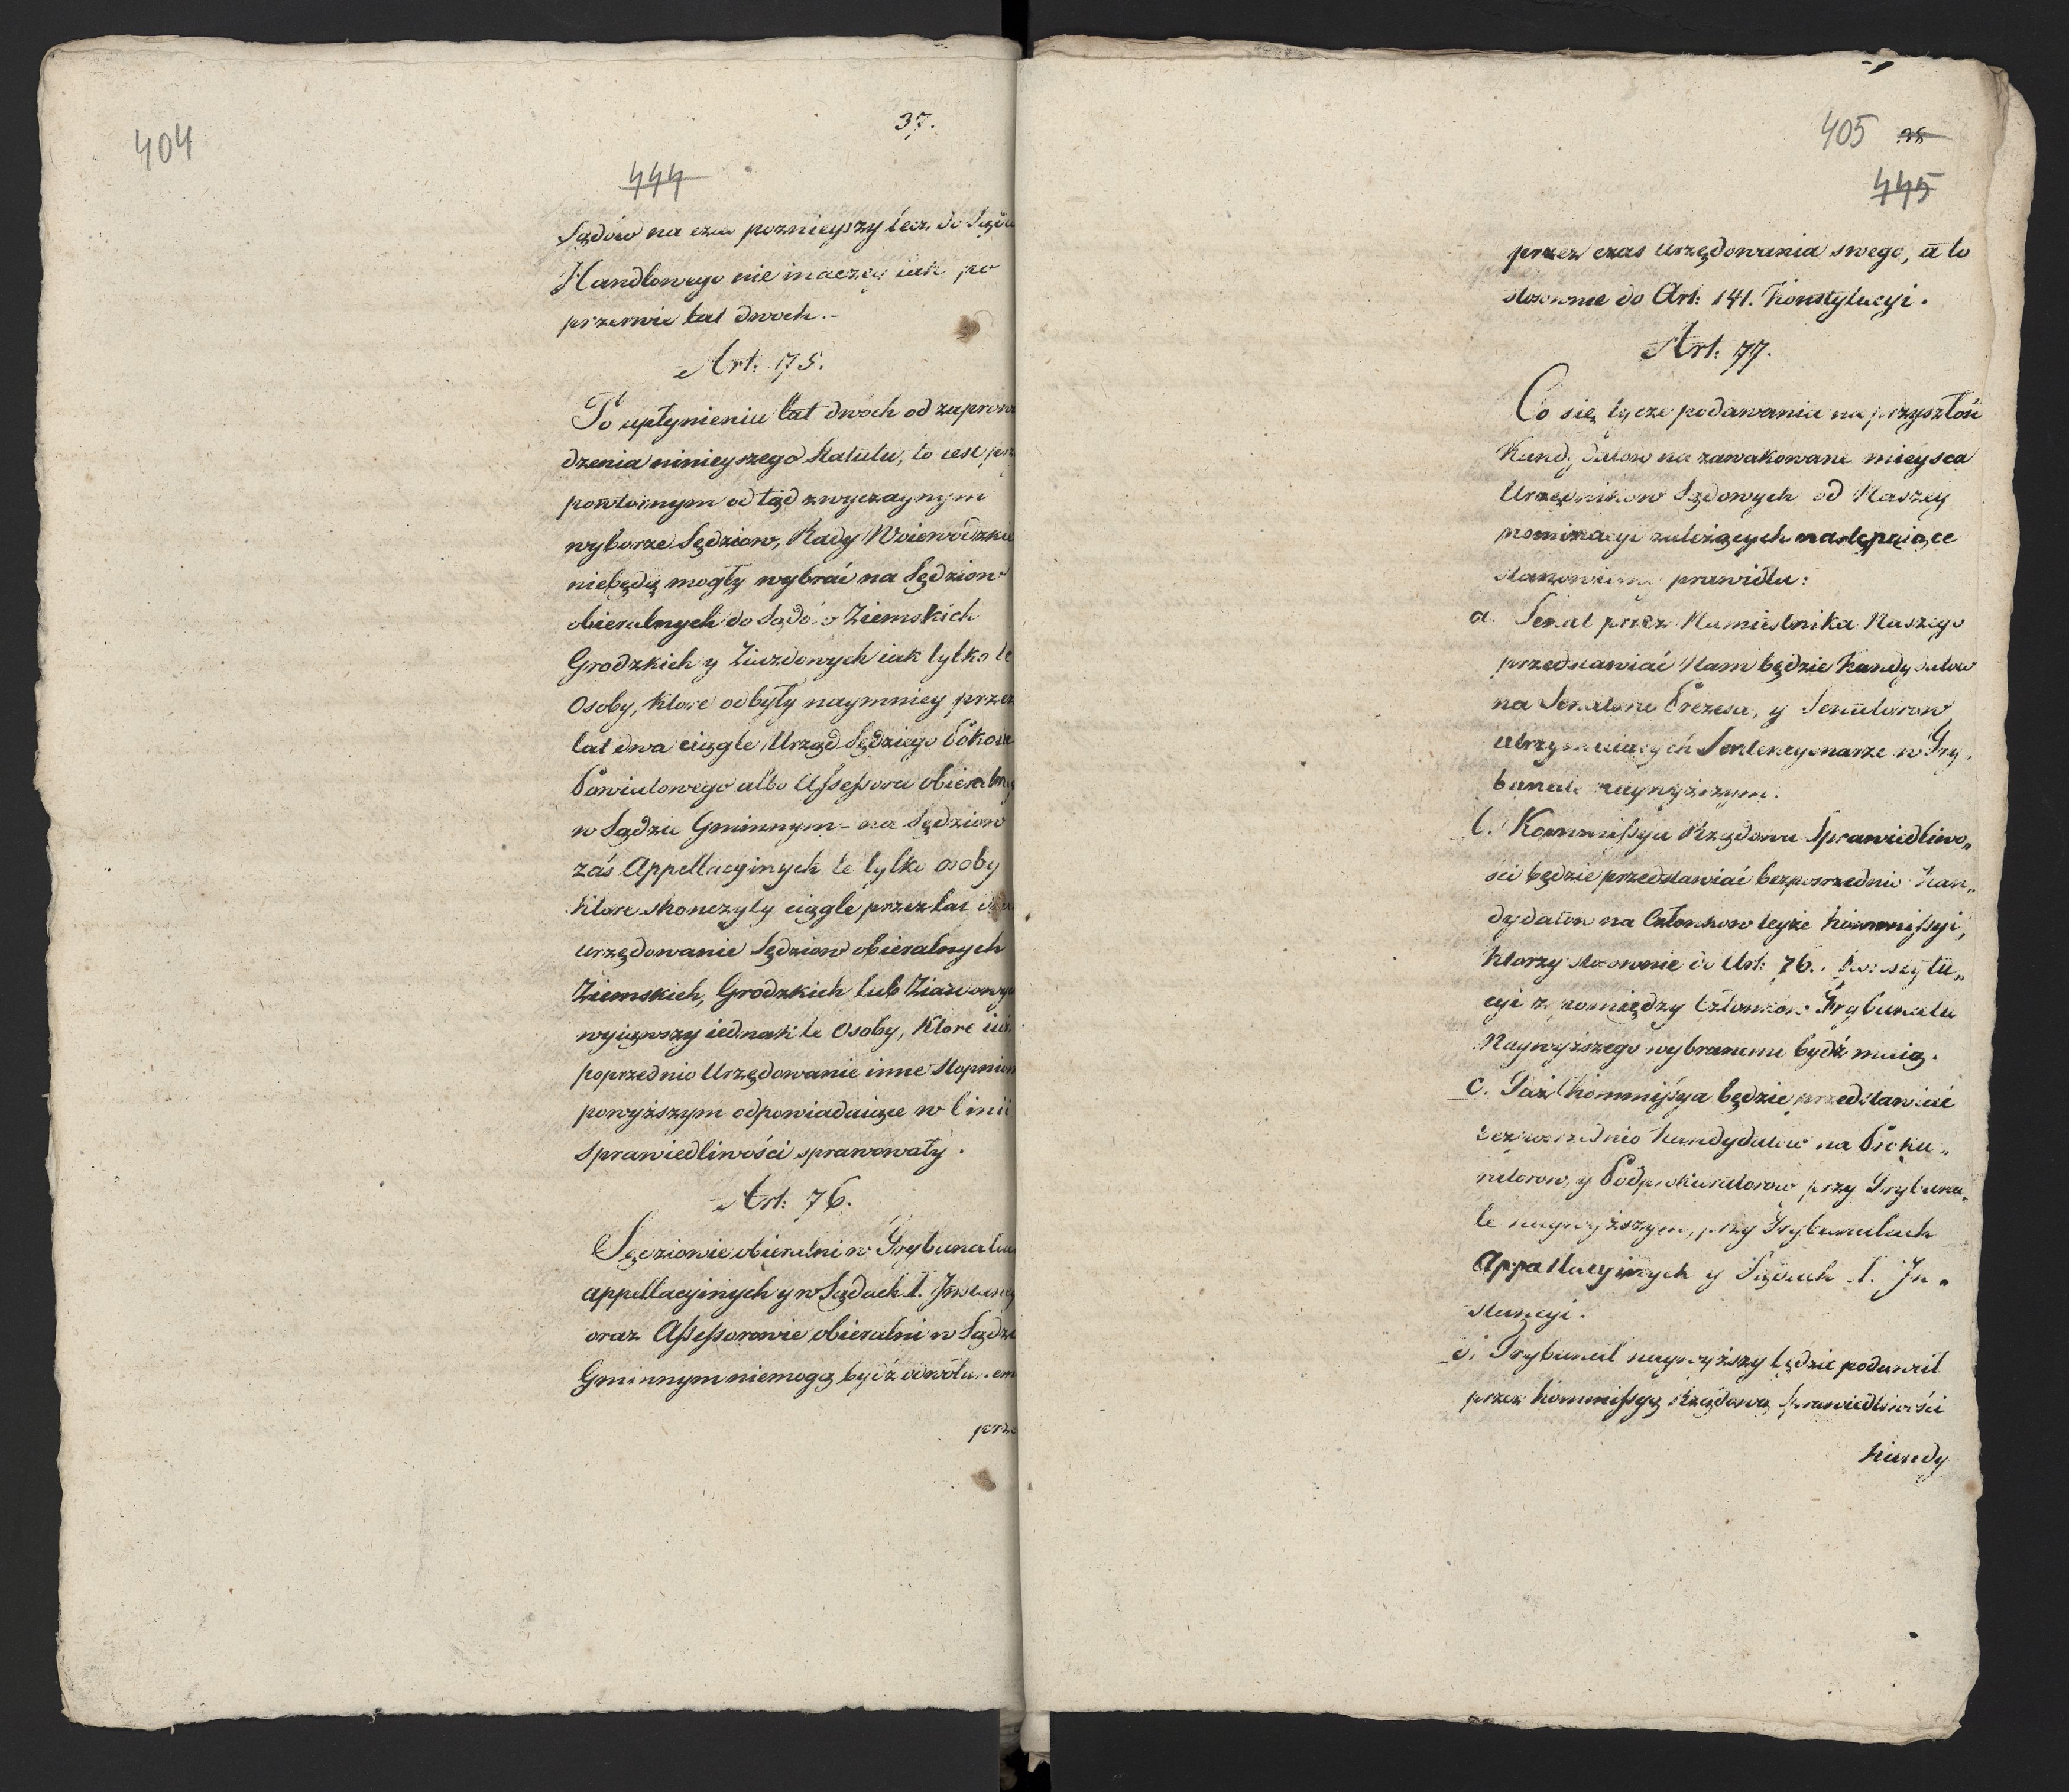 404
37.
444
Sądów na czas poznieyszy lecz do Sądu
Handlowego nie inaczey iak po
przerwie lat dwoch.-
Art: 75.
Po upłynieniu lat dwóch od zaprow
dzenia ninieyszego Statutu, to iest prz
powtórnym od tąd zwyczaynym
wyborze Sędziow, Rady Woiewódzkie
niebędą mogły wybrać na Sędziow
obieralnych do Sądów Ziemskich
Grodzkich y Ziazdowych iak tylko te
Osoby, Ktore odbyły naymniey przez
lat dwa ciągle Urząd Sędziego Pokoiu
Powiatowego albo Assessora obieralneg
w Sądzie Gminnym - na Sędziow
zaś Appellacyinych te tylko osoby
Ktore skonczyły ciągle przez lat dwa
urzędowanie Sędziow obieralnych
Ziemskich, Grodzkich lub Ziazdowych
wyiąwszy iednak te Osoby, Ktore iuż
poprzednio Urzędowanie inne stopniom
powyższym odpowiadaiące w linii
sprawiedliwości sprawowały.
Art: 76.
Sędziowie obieralni w Trybunałac
appellacyinych y w Sądach I. Instancy
oraz Assessorowie obieralni w Sądzi
Gminnym niemogą bydź odwołanem
prze
405 38
445
przez czas urzędowania swego, a to
stosownie do Art: 141. Konstytucyi.
Art: 77.
Co się tycze podawania na przyszłość
Kandydatow na zawakowane mieysca
Urzędnikow Sądowych od Naszey
nominacyi zależących następuiące
stanowiemy prawidła:
a. Senat przez Namiestnika Naszego
przedstawiać Nam będzie Kandydatow
na Senatora Prezesa, y Senatorow
utrzymuiących Sentencyonarze w Try,
bunale naywyższym.
b. Kommissya Rządowa Sprawiedliwo„
ści będzie przedstawiać bezposrzednio Kan„
dydatow na Członkow teyże Kommissyi,
Ktorzy stosownie do Art: 76. Konstytu„
cyi z pomiędzy Członkow Trybunału
Naywyższego wybranemi bydź maią.
c. Taż Kommissya będzie przedstawiać
bezposrzednio Kandydatow na Proku„
ratorow, y Podprokuratorow przy Trybuna„
le naywyższym, przy Trybunałach
Appellacyinych y Sądach I. In„
stancyi.
d. Trybunał naywyższy będzie podawał
przez Kommissyą Rządową Sprawiedliwości
Kandy